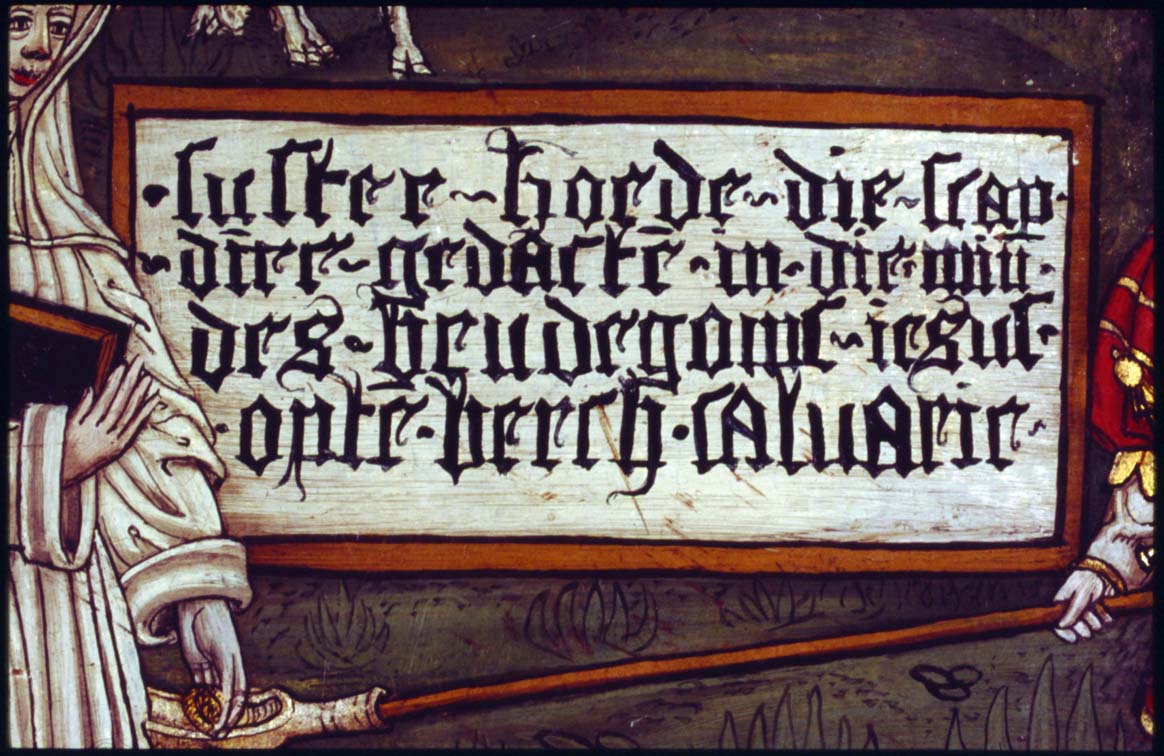 suster hoede die scap
diere gedactē in die minū
des brudegoms iesus
opte berch caluarie